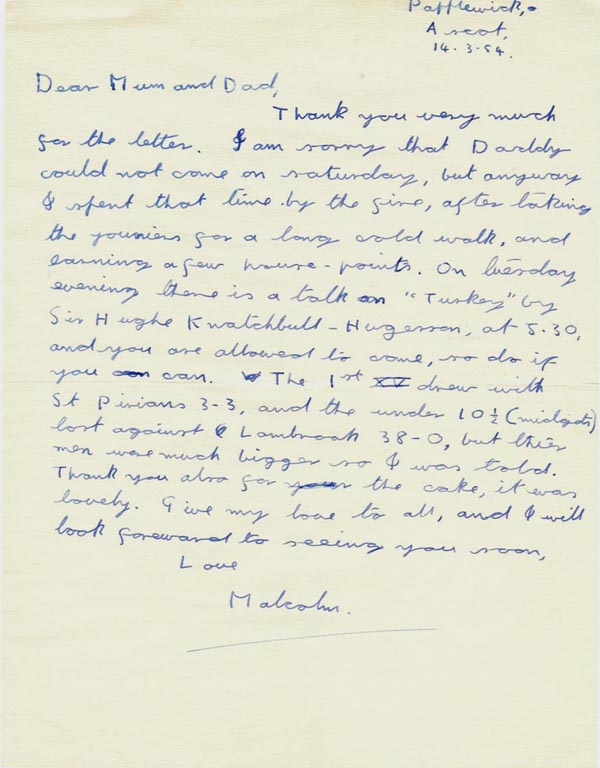 Papplewick,
Ascot,
14.3.54.
Dear Mum and Dad,
Thank you very much
for the letter. I am sorry that Daddy
could not come on saturday, but anyway
I spent that time by the fire, after taking
the youniers for a long cold walk, and
earning a few house-points. On tuesday
evening there is a talk on "Turkey" by
Sir Hughe Knatchbull-Hugesson, at 5.30,
and you are allowed to come, so do if
you can can. The 1st XV drew with
St Pirians 3-3, and the under 10½ (midgets)
lost against Lambrook 38-0, but thier
men were much bigger so I was told.
Thank you also for your the cake, it was
lovely. Give my love to all, and I will
look foreward to seeing you soon,
Love
Malcolm.